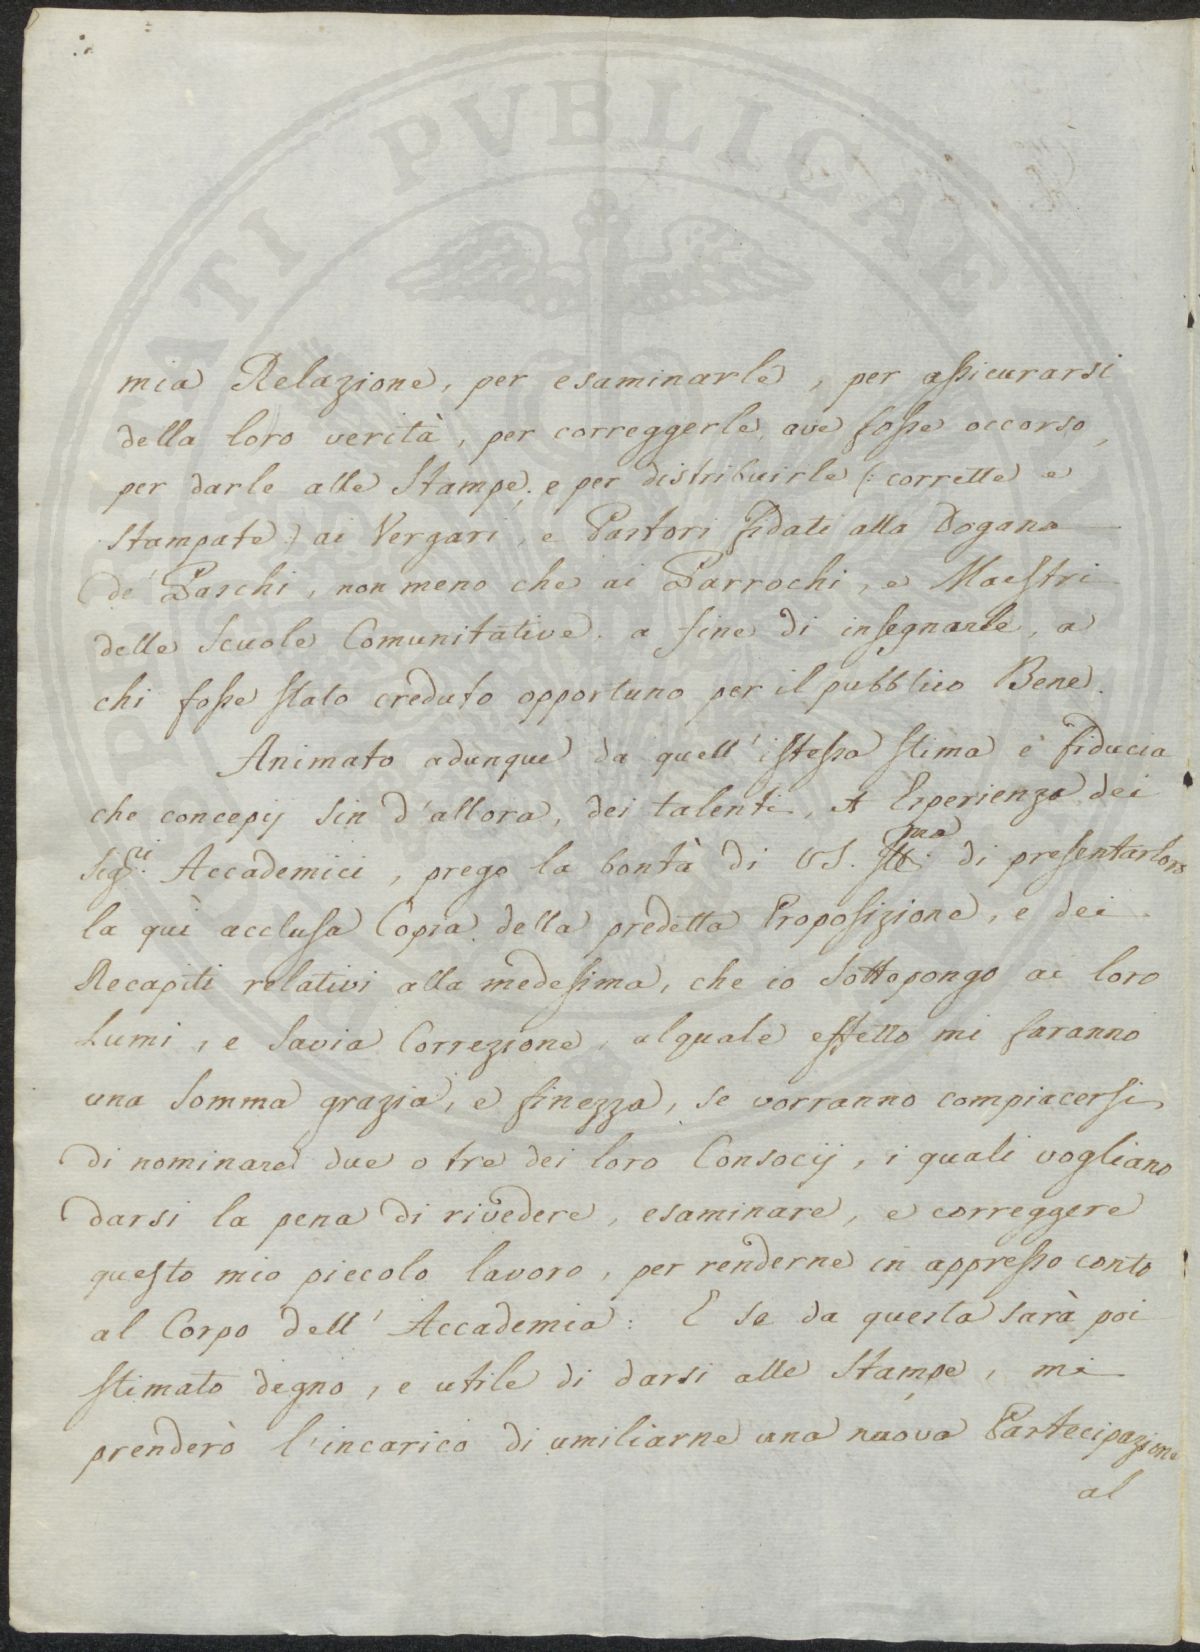 mia Relazione, per esaminarle, per assicurarsi
della loro verità, per correggerle, ove fosse occorso,
per darle alle Stampe, e per distribuirle (: corrette e
stampate :) ai Vergari, e Pastori fidati alla Dogana
de' Paschi, non meno che ai Parrochi, e Maestri
delle Scuole Comunitative, a fine di insegnarle, a
chi fosse stato creduto opportuno per il pubblico Bene.
Animato adunque da quell' istessa stima e fiducia
che concepij sin d'allora, dei talenti, et Esperienza dei
Sig.ri Accademici, prego la bontà di VS. Ill.ma di presentar loro
la quì acclusa Copia della predetta Proposizione, e dei
Recapiti relativi alla medesima, che io sottopongo ai loro
Lumi, e savia Correzione, al quale effetto mi faranno
una somma grazia, e finezza, se vorranno compiacersi
di nominare due o tre dei loro Consocij, i quali vogliano
darsi la pena di rivedere, esaminare, e correggere
questo mio piccolo lavoro, per renderne in appresso conto
al Corpo dell' Accademia: E se da questa sarà poi
stimato degno, e utile di darsi alle Stampe, mi
prenderò l'incarico di umiliarne una nuova Partecipazione
al
PVBLICAE